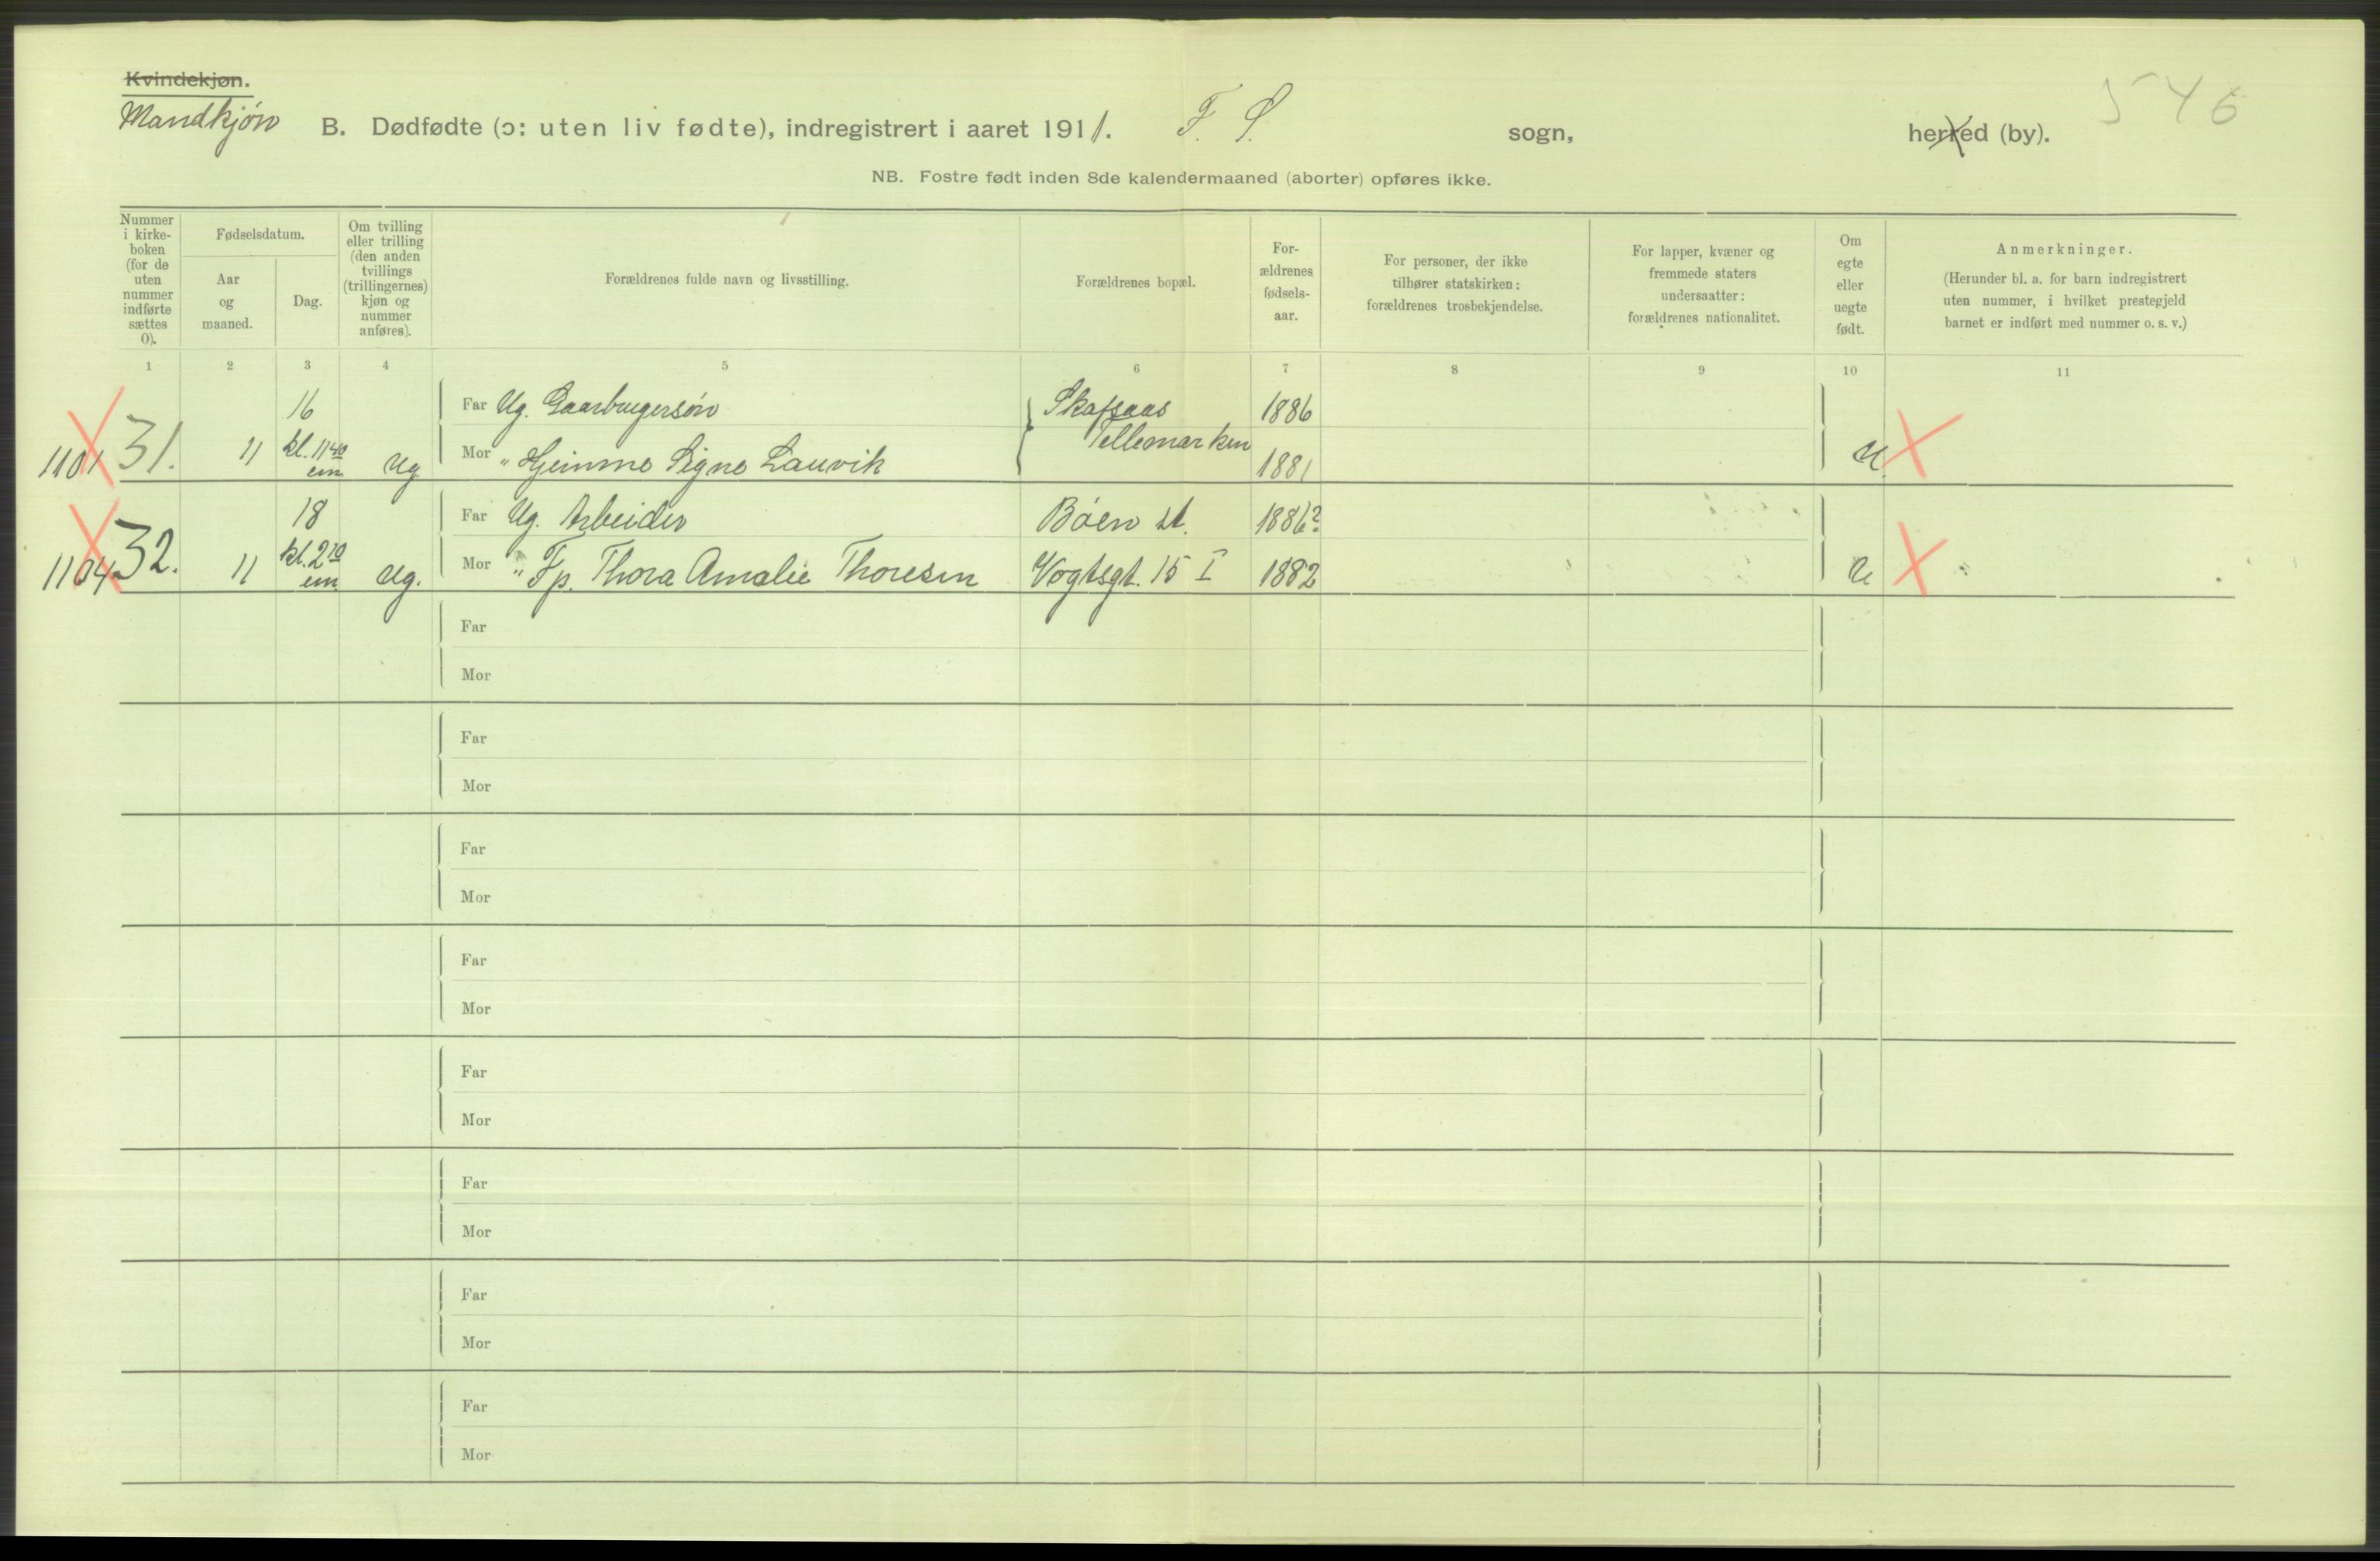 Kvindekjøn.
Mandkjøn
B. Dødfødte (ɔ: uten liv fødte), indregistrert i aaret 1911. F. S. sogn, herred (by). 546
NB. Fostre født inden 8de kalendermaaned (aborter) opføres ikke.
Nummer i kirke-boken (for de uten nummer indførte sættes 0).
Fødselsdatum.
Aar og maaned.
Dag.
Om tvilling eller trilling (den anden tvillings (trillingernes) kjøn og nummer anføres).
Forældrenes fulde navn og livsstilling.
Forældrenes bopæl.
For-ældrenes fødsels-aar.
For personer, der ikke tilhører statskirken: forældrenes trosbekjendelse.
For lapper, kvæner og fremmede staters undersaatter: forældrenes nationalitet.
Om egte eller uegte født.
Anmerkninger.
(Herunder bl. a. for barn indregistrert uten nummer, i hvilket prestegjeld barnet er indført med nummer o. s. v.)
1 2 3 4 5 6 7 8 9 10 11
16 Far Ug. Gaarbrugersøn Skafsaas 1886
1101 31. 11 kl. 11 40 em Ug Mor " Hjemme Signe Lauvik Tellemarken 1881 U.
18 Far Ug. Arbeider Bøen st. 1886?
1104 32. 11 kl. 2 10 em. Ug. Mor " Tp. Thora Amalie Thoresen Vogtsgt. 15 I 1882 U
Far
Mor
Far
Mor
Far
Mor
Far
Mor
Far
Mor
Far
Mor
Far
Mor
Far
Mor